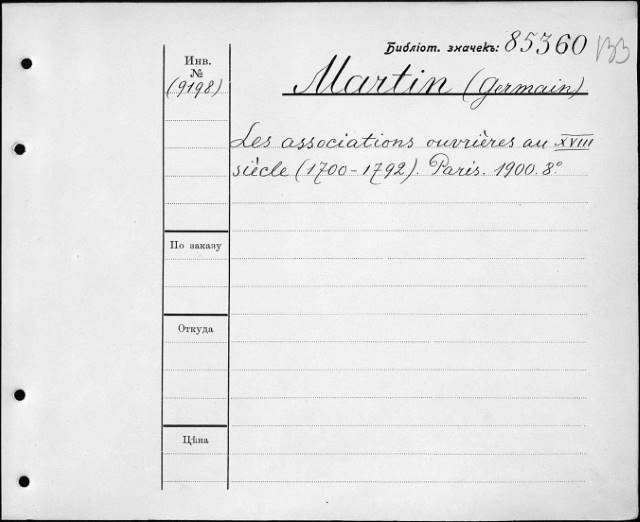 Библіот. значекъ: 85360 133
Инв.
№
(9198)
Martin (Germain)
Les associations ouvrières au XVIII
siècle (1700-1792). Paris. 1900. 8º
По заказу
Откуда
Цѣна